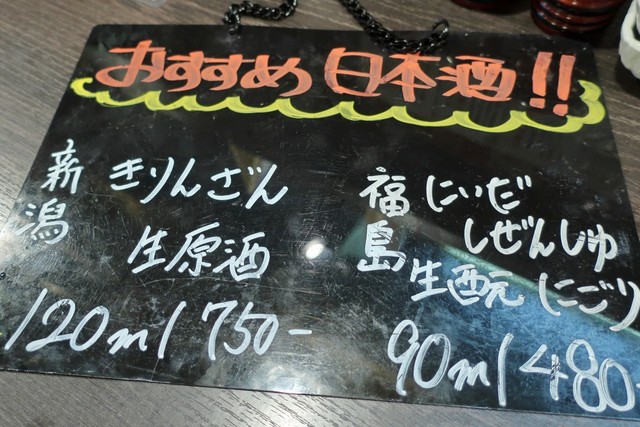 おすすめ日本酒!!
新潟 きりんざん
生原酒
120ml 750-
福島 にいだ
しぜんしゅ
生酛 (にごり
90ml 480